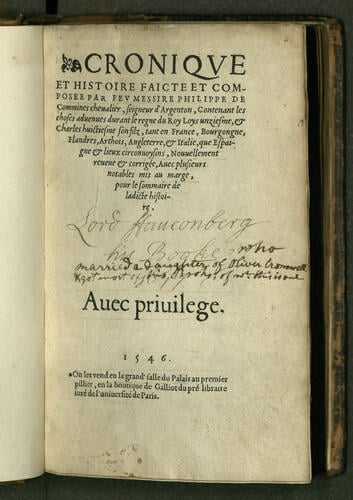 CRONIQVE
ET HISTOIRE FAICTE ET COM-
POSEE PAR FEV MESSIRE PHILIPPE DE
Commines cheualier, seigneur d'Argenton, Contenant les
choses aduenues durant le regne du Roy Loys unziesme, &
Charles huictiesme son filz, tant en France, Bourgongne,
Flandres, Arthois, Angleterre, & Italie, que Espai-
gne & lieux circonuoysins, Nouuellement
reueue & corrigée, Auec plusieurs
notables mis au marge,
pour le sommaire de
ladicte histoi-
re.
Lord Hauconberg
his Booke who
married a daughter of Oliver Cromwell
his books of wch this is one
Auec priuilege.
1546.
On les vend en la grand' salle du Palais au premier
pillier, en la boutique de Galliot du pré libraire
iuré de l'vniuersité de Paris.